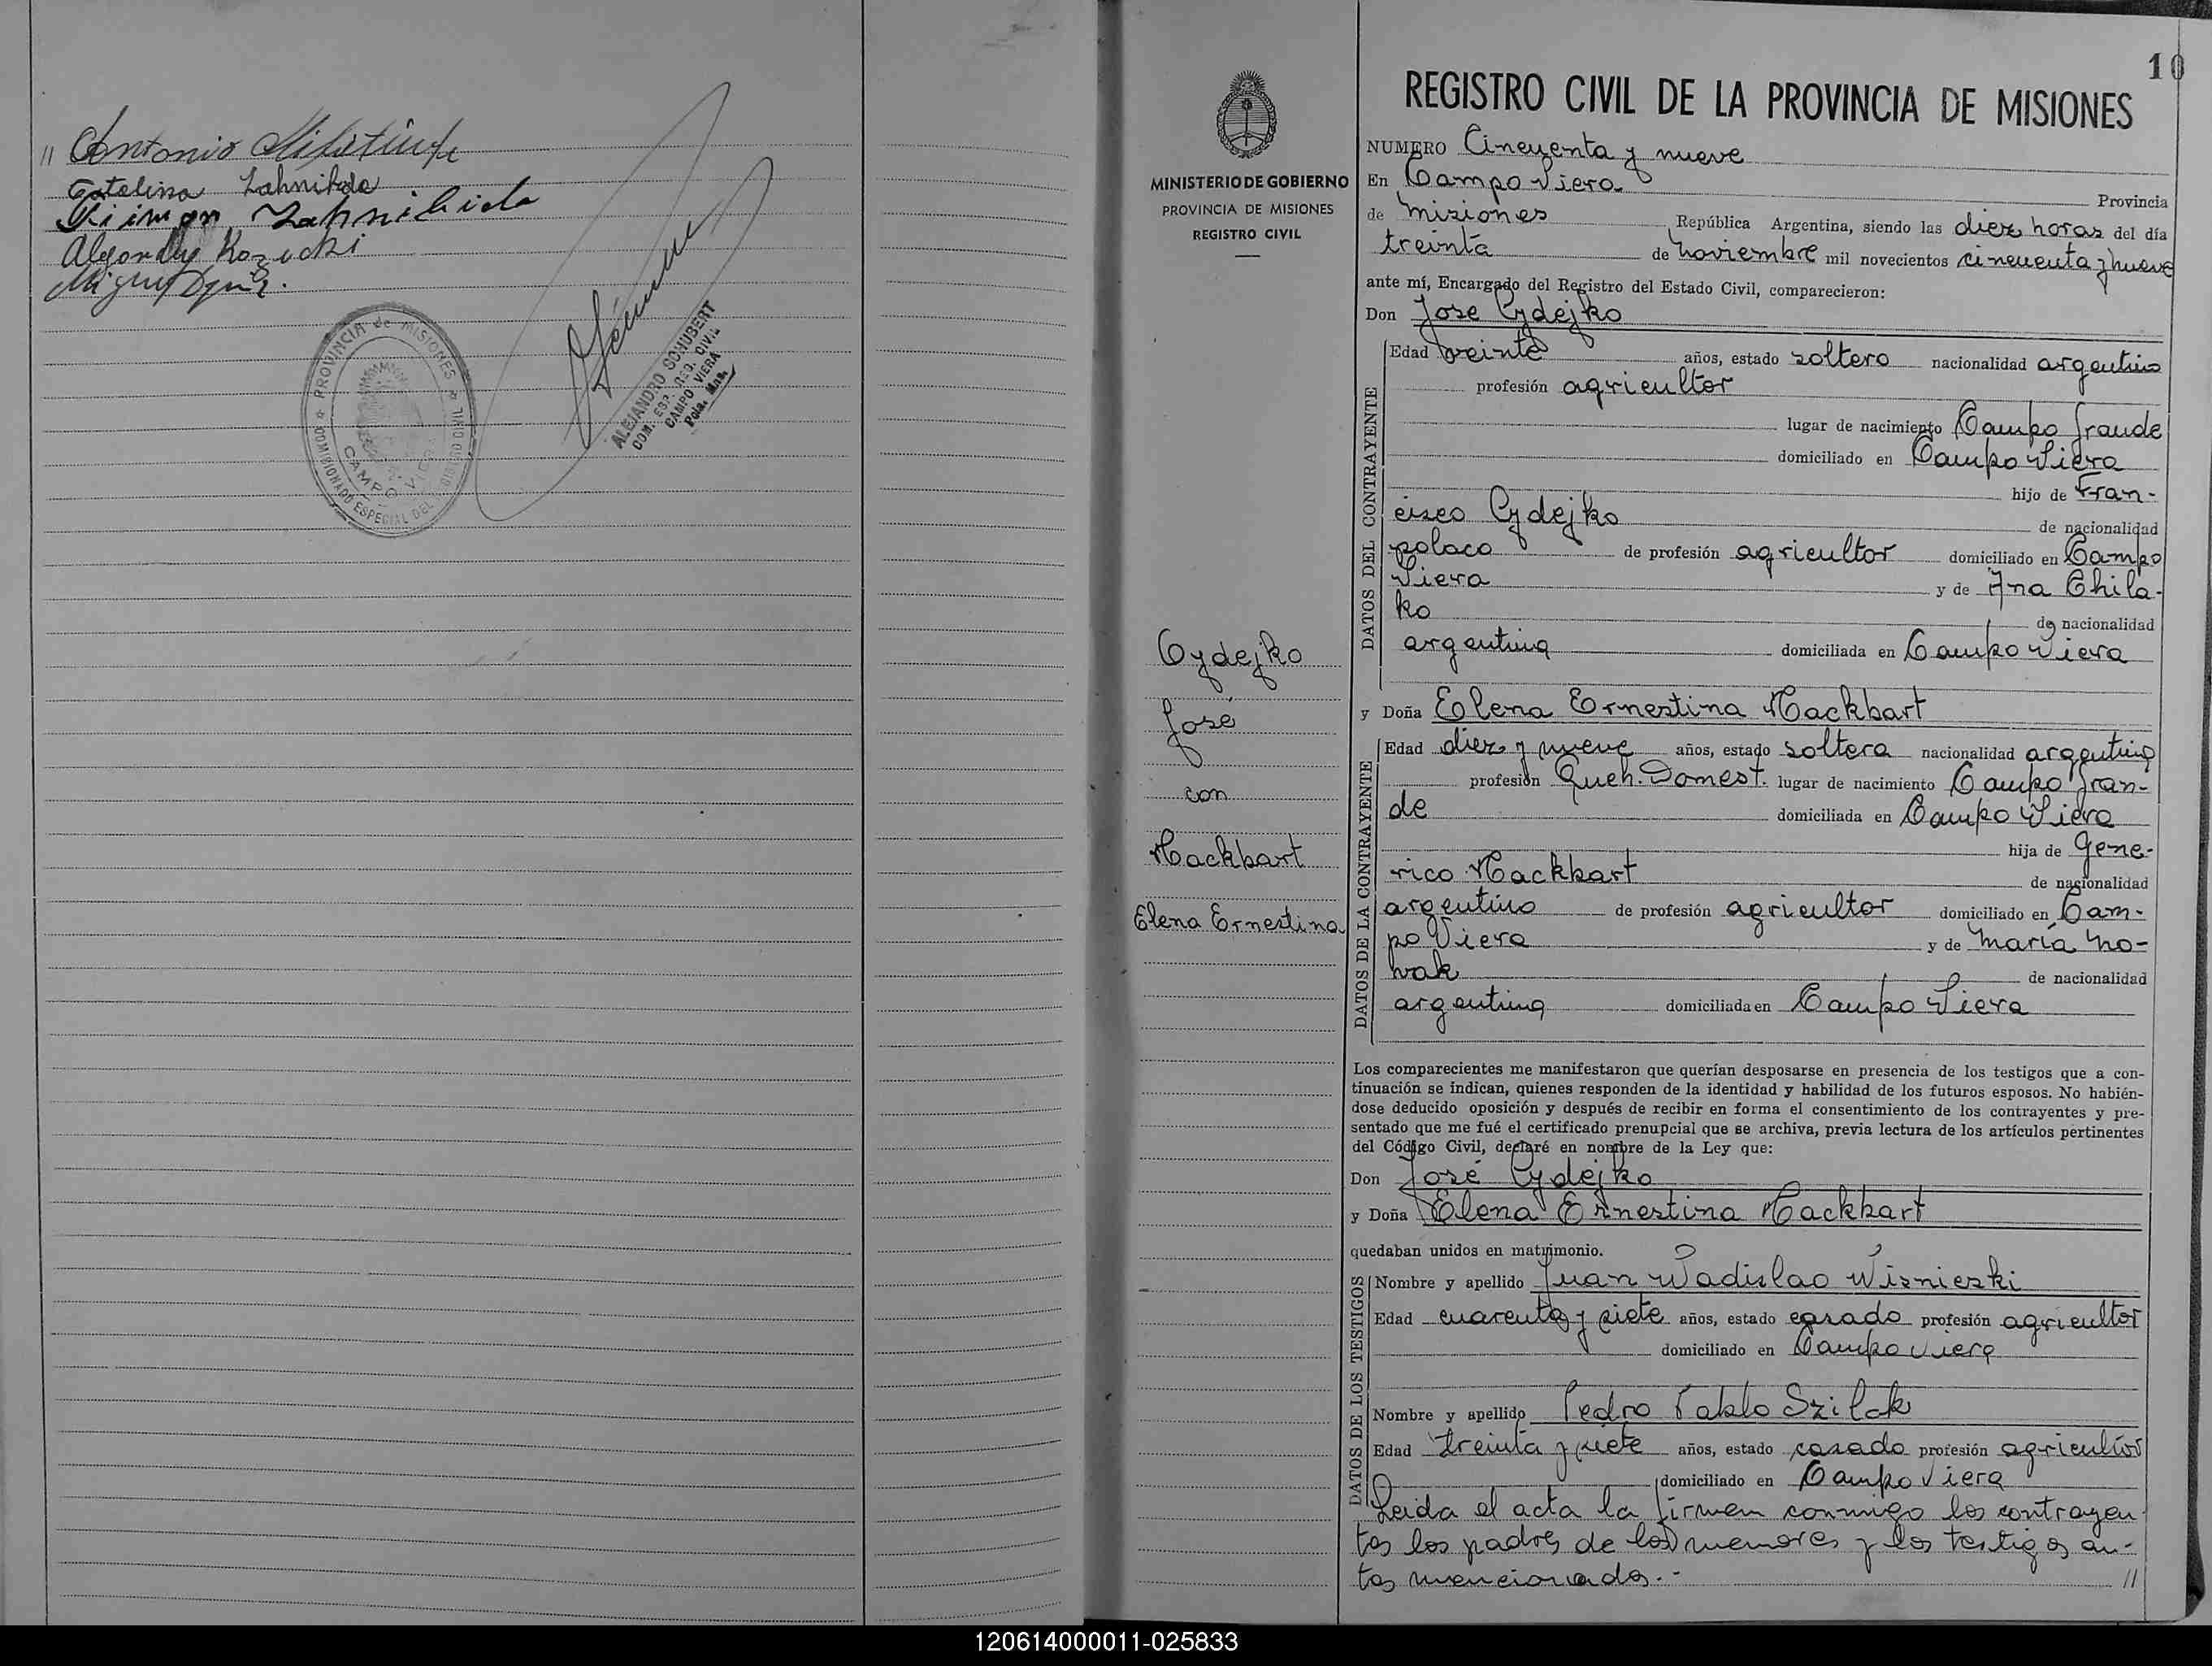 // Antonio
Catalina Zahnikda
Alejandro Kozucki
Miguel
PROVINCIA de MISIONES
COMISIONADO ESPECIAL DEL REGISTRO CIVIL
CAMPO VIERA
ALEJANDRO SCHUBERT
COM. ESP. REG. CIVIL
CAMPO VIERA
Pcia. Mnes.
10
MINISTERIO DE GOBIERNO
PROVINCIA DE MISIONES
REGISTRO CIVIL
Cydejko
José
con
Hackbart
Elena Ernestina
REGISTRO CIVIL DE LA PROVINCIA DE MISIONES
NUMERO Cincuenta y nueve
En Campo Viera Provincia
de Misiones República Argentina, siendo las diez horas del día
treinta de Noviembre mil novecientos cincuenta y nueve
ante mí, Encargado del Registro del Estado Civil, comparecieron:
Don Jose Cydejko
DATOS DEL CONTRAYENTE
Edad veinte años, estado soltero nacionalidad argentino
profesión agricultor
lugar de nacimiento Campo Grande
domiciliado en Campo Viera
hijo de Fran-
cisco Cydejko de nacionalidad
polaco de profesión agricultor domiciliado en Campo
Viera y de Ana Chila-
ko de nacionalidad
argentina domiciliada en Campo Viera
y Doña Elena Ernestina Hackbart
DATOS DE LA CONTRAYENTE
Edad diez y nueve años, estado soltera nacionalidad argentina
profesión Queh. Domest. lugar de nacimiento Campo Gran-
de domiciliada en Campo Viera
hija de Gene-
rico Hackbart de nacionalidad
argentino de profesión agricultor domiciliado en Cam-
po Viera y de María No-
wak de nacionalidad
argentina domiciliada en Campo Viera
Los comparecientes me manifestaron que querían desposarse en presencia de los testigos que a con-
tinuación se indican, quienes responden de la identidad y habilidad de los futuros esposos. No habién-
dose deducido oposición y después de recibir en forma el consentimiento de los contrayentes y pre-
sentado que me fué el certificado prenupcial que se archiva, previa lectura de los artículos pertinentes
del Código Civil, declaré en nombre de la Ley que:
Don José Cydejko
y Doña Elena Ernestina Hackbart
quedaban unidos en matrimonio.
DATOS DE LOS TESTIGOS
Nombre y apellido Juan Wadislao Wisnieski
Edad cuarenta y siete años, estado casado profesión agricultor
domiciliado en Campo Viera
Nombre y apellido Pedro Pablo Szilak
Edad treinta y siete años, estado casado profesión agricultor
domiciliado en Campo Viera
Leida el acta la firmen conmigo los contrayen-
tes los padres de los menores y los testigos an-
tes mencionados.- //
120614000011-025833